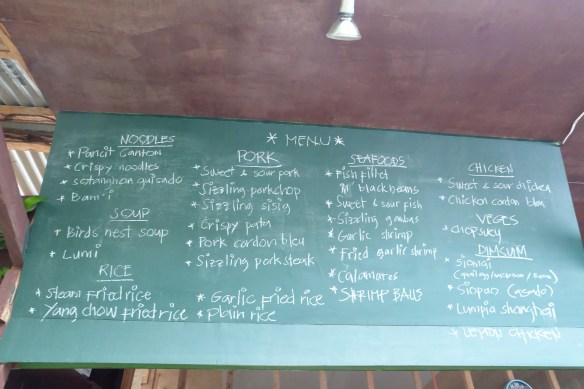 * MENU *
NOODLES
* Pancit Canton
* Crispy noodles
* sotanghon guisado
* Bam-i
SOUP
* Birds nest soup
* Lumi
RICE
* Steam Fried rice
* Yang chow fried rice
* Garlic fried rice
* Plain rice
PORK
* Sweet & sour pork
* Sizzling porkchop
* Sizzling sisig
* Crispy pata
* Pork cordon bleu
* Sizzling pork steak
SEAFOODS
* Fish fillet
w/ black beans
* Sweet & sour fish
* Sizzling gambas
* Garlic shrimp
* Fried garlic shrimp
* Calamares
* SHRIMP BALLS
CHICKEN
* Sweet & sour chicken
* Chicken cordon bleu
VEGES
* chopsuey
DIMSUM
* Siomai
* Siopao (asado)
* Lumpia shanghai
* LEMON CHICKEN